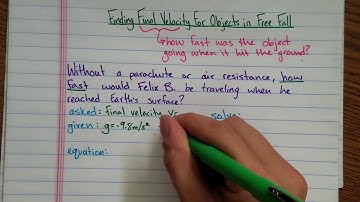 Finding Final Velocity For Objects in Free Fall
how fast was the object
going when it hit the ground?
Without a parachute or air resistance, how
fast would Felix B. be traveling when he
reached Earth's surface?
asked: final velocity solve:
given: g=-9.8m/s²
equation: